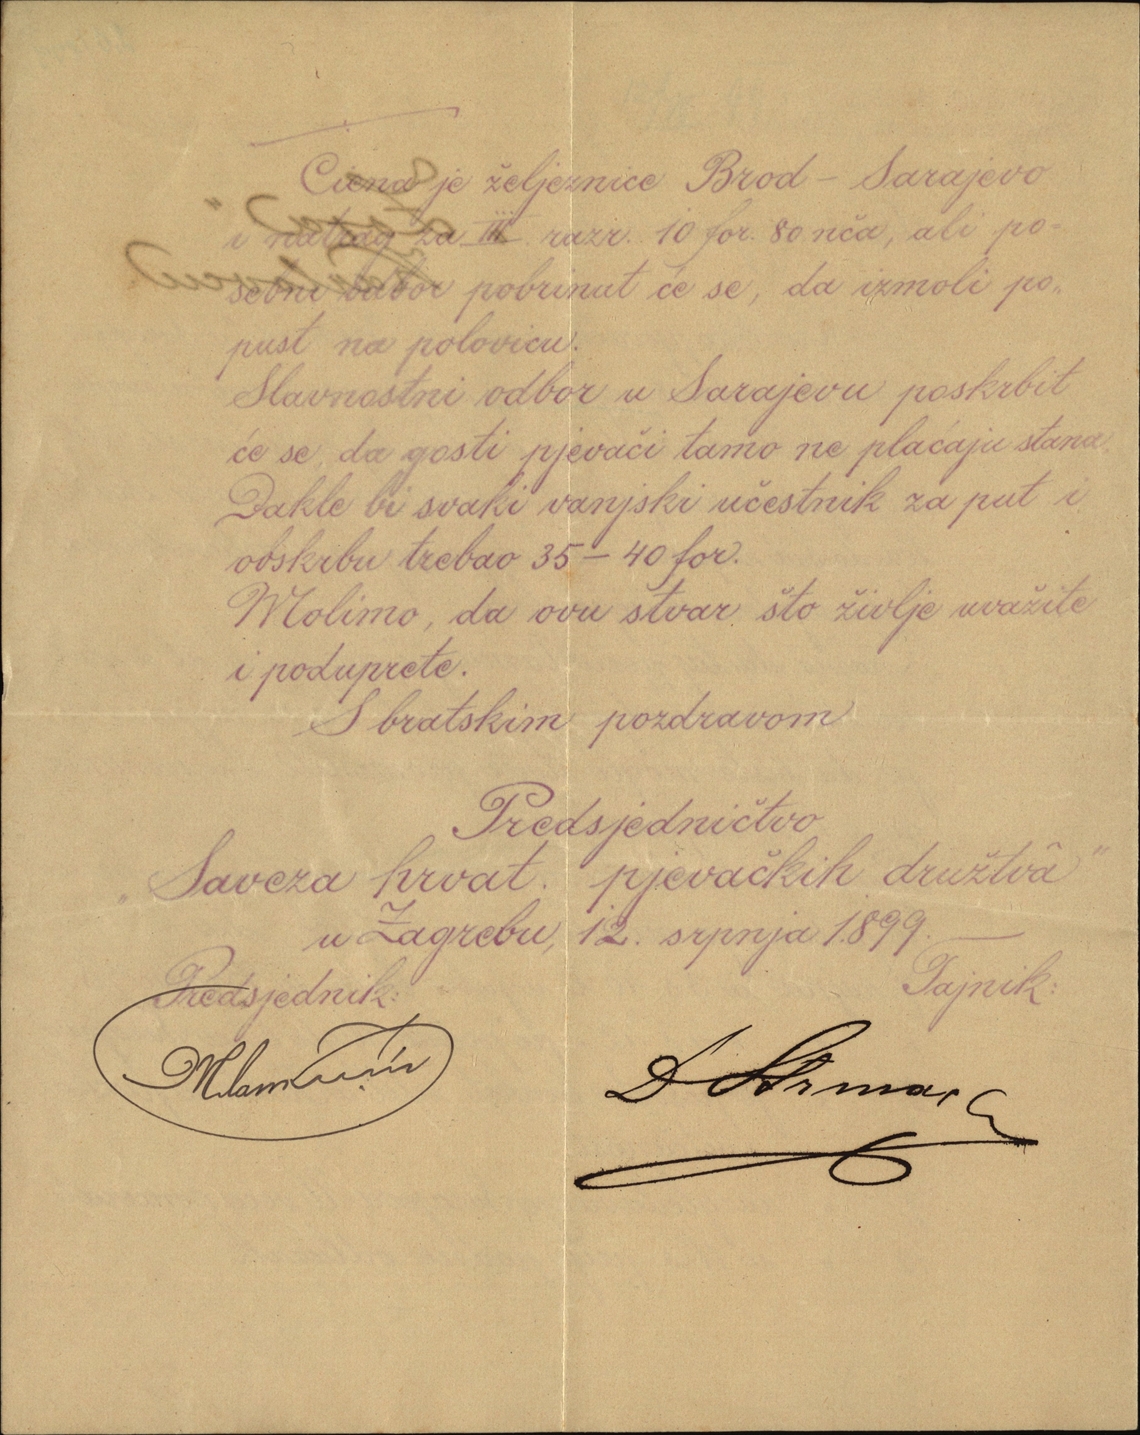 Ciena je željeznice Brod – Sarajevo
i natrag za III. razr. 10 for. 80 nča, ali po-
sebni odbor pobrinut će se, da izmoli po-
pust na polovicu.
Slavnostni odbor u Sarajevu poskrbit
će se, da gosti pjevači tamo ne plaćaju stana.
Dakle bi svaki vanjski učestnik za put i
obskrbu trebao 35 – 40 for.
Molimo, da ovu stvar što življe uvažite
i poduprete.
S bratskim pozdravom
Predsjedničtvo
„Saveza hrvat. pjevačkih družtvâ”
u Zagrebu, 12. srpnja 1899.
Predsjednik: Tajnik: